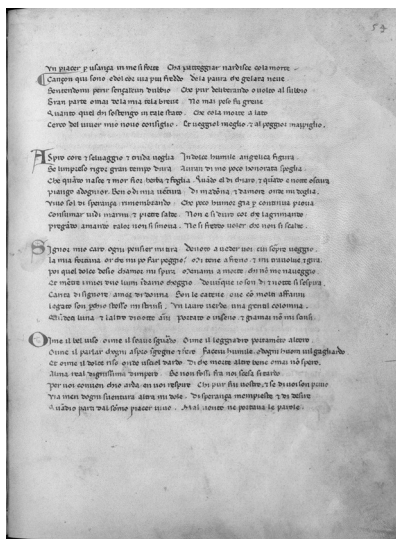 53
Vn piacer p usança in me si forte Cha patteggiar nardisce cola morte
Cançon qui sono edol cor via piu freddo Dela paura che gelata neve
Sentendomi perir sençalcun dubbio Che pur deliberando o volto al subbio
Gran parte omai dela mia tela breve Ne mai peso fu greve
Quanto quel chi sostengo in tale stato Che cola morte a lato
Cerco del viver mio novo consiglio Et veggiol meglio et al peggior mappiglio
Aspro core et selvaggio et cruda voglia In dolce humile angelica figura
Se limpreso rigor gran tempo dura Avran di me poco honorata spoglia
Che quando nasce et mor fior herba et foglia Quando el di chiaro et quando e notte oscura
Piango adognior Ben o di mia ventura Di madonna et damore onde mi doglia
Vivo sol di sperança rimembrando Che poco humor gia per continua prova
Consumar vidi marmi et pietre salde Non e si duro cor che lagrimando
pregando amando talor non si smova Ne si freddo voler che non si scalde
Signor mio caro ogni pensier mi tira Devoto a veder voi cui sempre veggio
La mia fortuna or che mi po far peggio Mi tene a freno et mi travolve et gira
poi quel dolce desio chamor mi spira Menami a morte chi non me naveggio
Et mentre i miei duo lumi indarno cheggio Dovunque io son di et notte si sospira
Carita di signore amor di donna Son le catene ove con molti affanni
Legato son perchio stesso mi strinsi Vn lauro verde una gentil colonna
Quindeci luna et laltro diciotto anni Portato o in seno et gia mai non mi scinsi
Oime il bel viso oime il soave sguardo Oime il leggiadro portamento altero
Oime il parlar chogni aspro ingegno et fero Facevi humile edogni huom vil gagliardo
Et oime il dolce riso onde uscio l dardo Di che morte altro bene omai non spero
Alma real dignissima dimpero Se non fossi fra noi scesa si tardo
Per voi conven chio arda en voi respire Chi pur fui vostro et se di voi son privo
Via men dogni sventura altra mi dole Di sperança mempieste et di desire
Quandio parti dal sommo piacer vivo Mal vento ne portava le parole